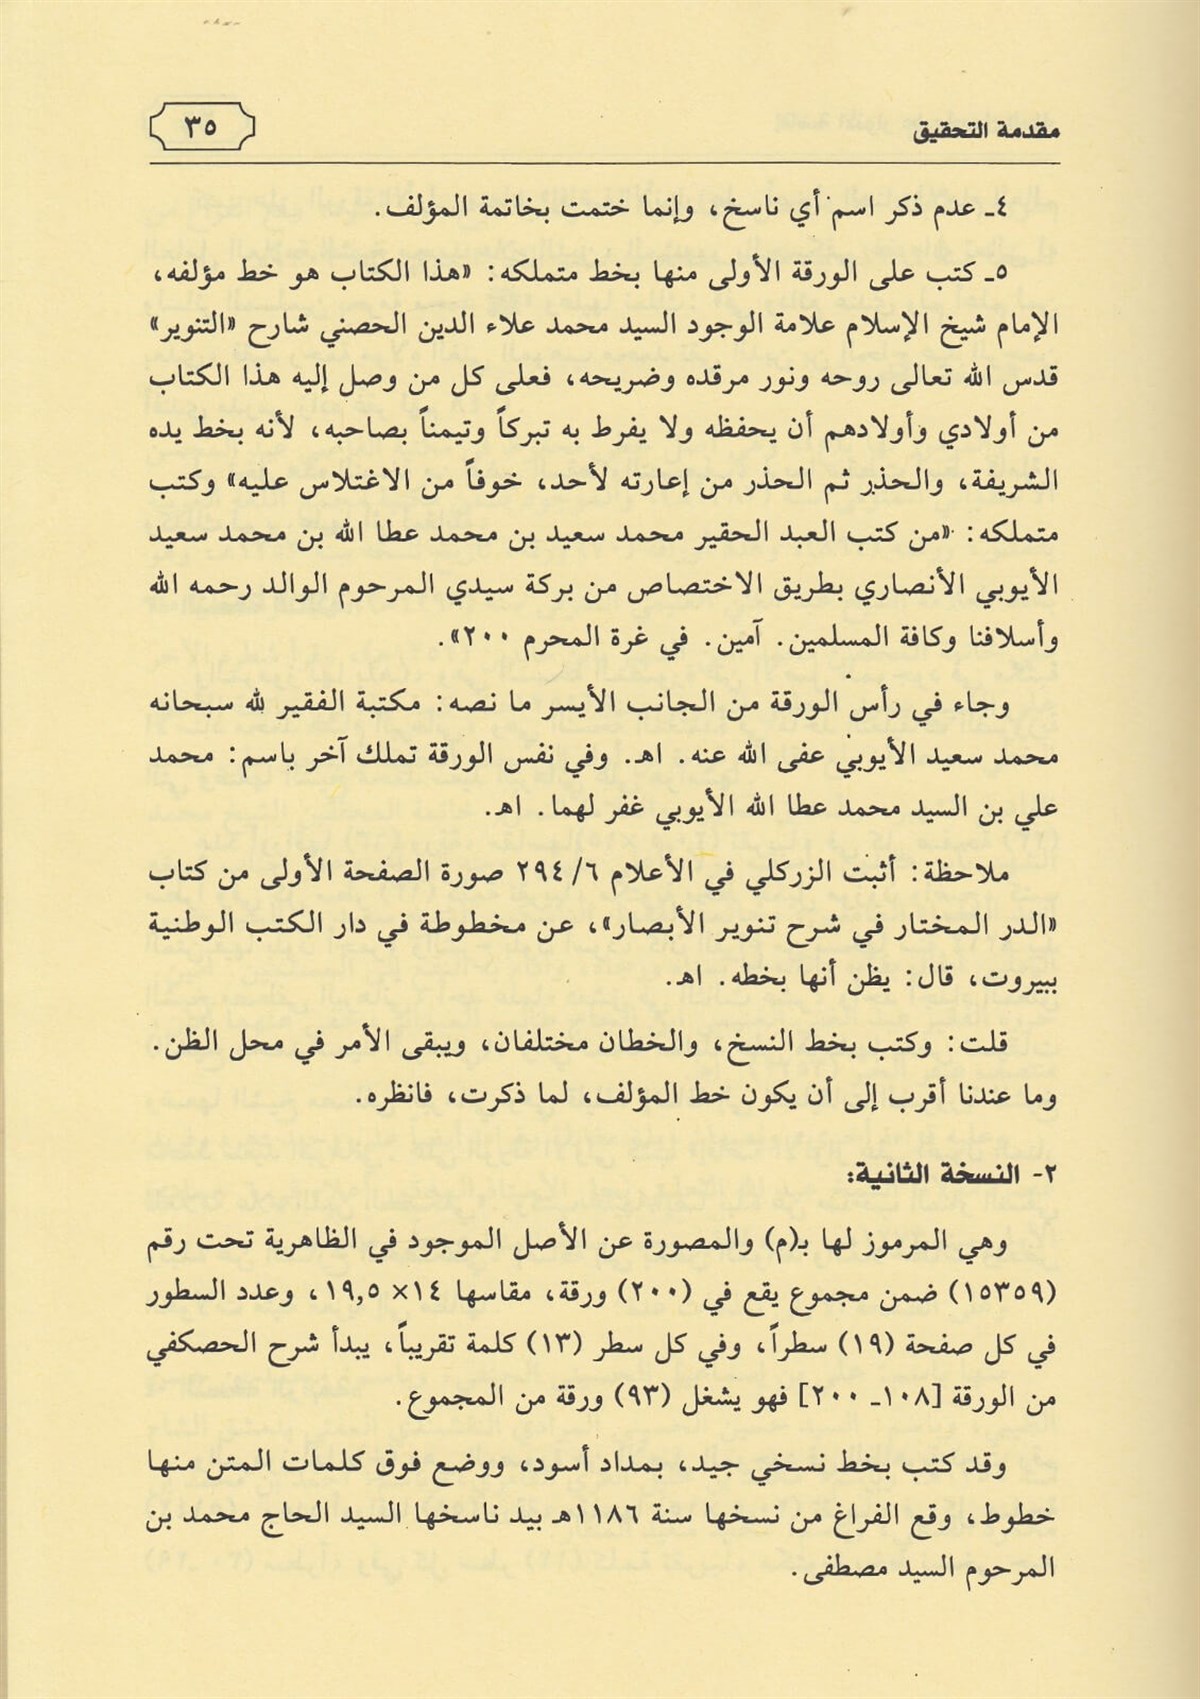 مقدمة التحقيق
٣٥
٤ـ عدم ذكر اسم أي ناسخ، وإنما ختمت بخاتمة المؤلف.
٥ـ كتب على الورقة الأولى منها بخط متملكه: «هذا الكتاب هو خط مؤلفه،
الإمام شيخ الإسلام علامة الوجود السيد محمد علاء الدين الحصني شارح «التنوير»
قدس الله تعالى روحه ونور مرقده وضريحه، فعلى كل من وصل إليه هذا الكتاب
من أولادي وأولادهم أن يحفظه ولا يفرط به تبركاً وتيمناً بصاحبه، لأنه بخط يده
الشريفة، والحذر ثم الحذر من إعارته لأحد، خوفاً من الاغتلاس عليه» وكتب
متملكه: «من كتب العبد الحقير محمد سعيد بن محمد عطا الله بن محمد سعيد
الأيوبي الأنصاري بطريق الاختصاص من بركة سيدي المرحوم الوالد رحمه الله
وأسلافنا وكافة المسلمين. آمين. في غرة المحرم ٢٠٠».
وجاء في رأس الورقة من الجانب الأيسر ما نصه: مكتبة الفقير لله سبحانه
محمد سعيد الأيوبي عفى الله عنه. اهـ. وفي نفس الورقة تملك آخر باسم: محمد
علي بن السيد محمد عطا الله الأيوبي غفر لهما. اهـ.
ملاحظة: أثبت الزركلي في الأعلام ٢٩٤/٦ صورة الصفحة الأولى من كتاب
«الدر المختار في شرح تنوير الأبصار»، عن مخطوطة في دار الكتب الوطنية
ببيروت، قال: يظن أنها بخطه. اهـ.
قلت: وكتب بخط النسخ، والخطان مختلفان، ويبقى الأمر في محل الظن.
وما عندنا أقرب إلى أن يكون خط المؤلف، لما ذكرت، فانظره.
٢- النسخة الثانية:
وهي المرموز لها بـ(م) والمصورة عن الأصل الموجود في الظاهرية تحت رقم
(١٥٣٥٩) ضمن مجموع يقع في (٢٠٠) ورقة، مقاسها ١٤× ١٩,٥، وعدد السطور
في كل صفحة (١٩) سطراً، وفي كل سطر (١٣) كلمة تقريباً، يبدأ شرح الحصكفي
من الورقة [١٠٨ـ ٢٠٠] فهو يشغل (٩٣) ورقة من المجموع.
وقد كتب بخط نسخي جيد، بمداد أسود، ووضع فوق كلمات المتن منها
خطوط، وقع الفراغ من نسخها سنة ١١٨٦هـ بيد ناسخها السيد الحاج محمد بن
المرحوم السيد مصطفى.